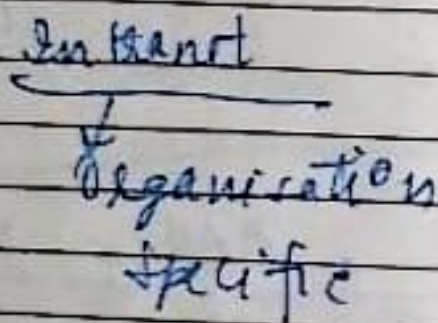 Intranet
Organisation
specific